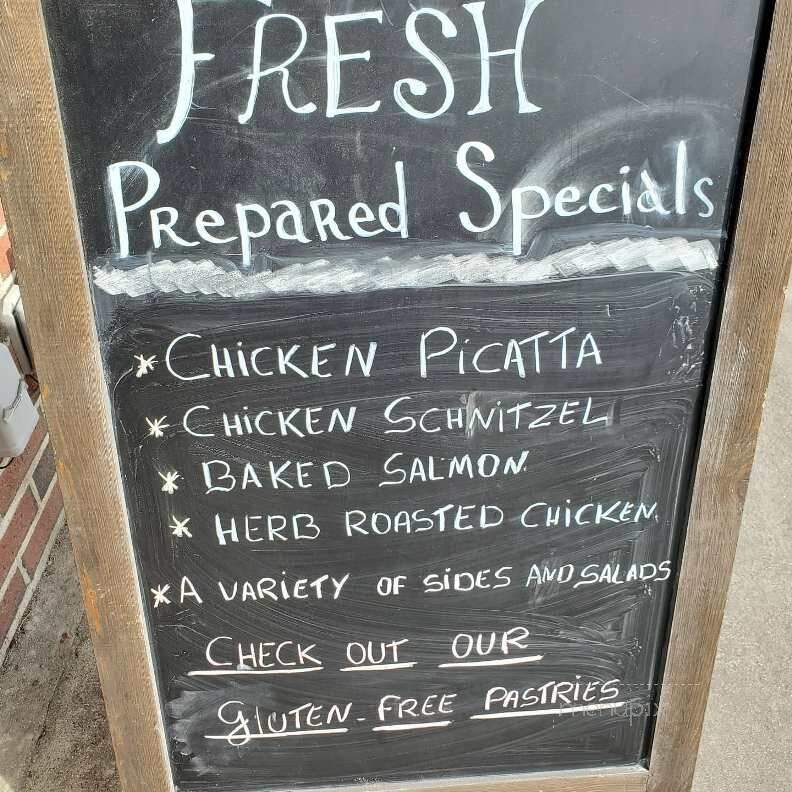 FRESH
PrepaRed Specials
* CHiCKEN PiCATTA
* CHiCKEN SCHNITZEL
* BAKED SALMON
* HERB ROASTED CHiCKEN
* A VARiETY OF SiDES AND SALADS
CHECK OUT OUR
GLUTEN-FREE PASTRiES
menupix